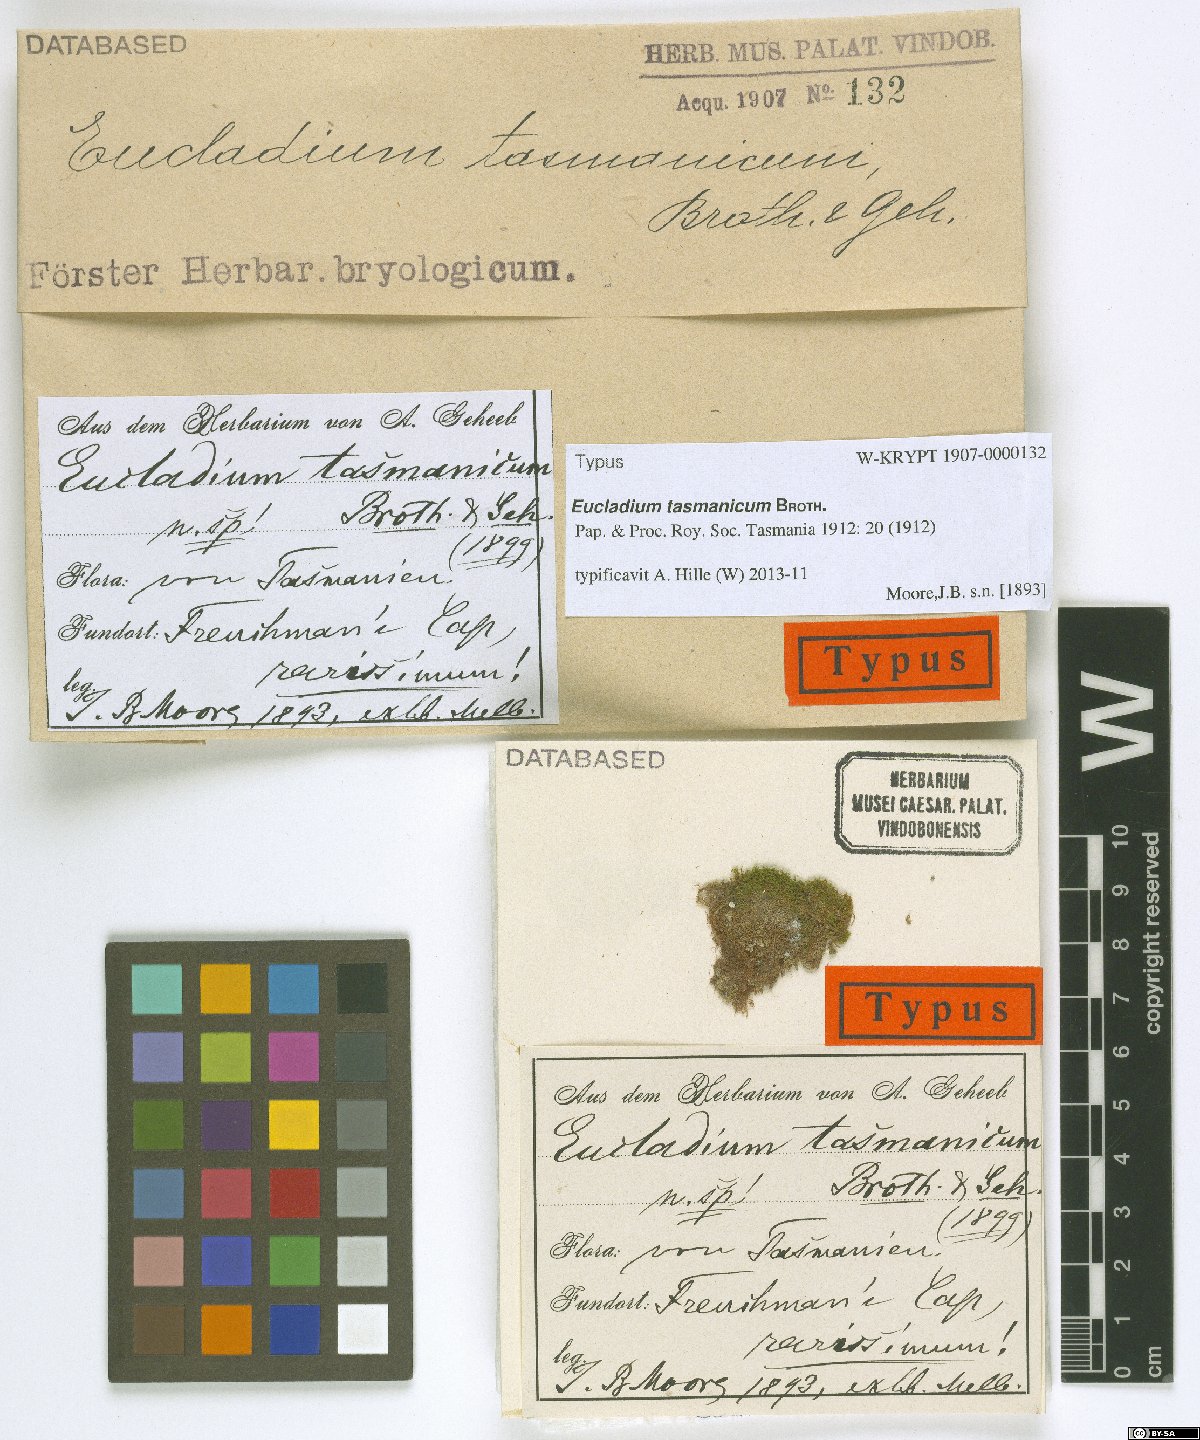 DATABASED
HERB. MUS. PALAT. VINDOB.
Acqu. 1907 No. 132
Eucladium tasmanicum,
Broth. & Geh.
Förster Herbar. bryologicum.
Aus dem Herbarium von A. Geheeb
Eucladium tasmanicum
n. sp! Broth. & Geh.
(1899)
Flora: von Tasmanien.
Fundort: Frenchman's Cap,
rarissimum!
leg. J. B. Moore 1893, ex hb. Melb.
Typus
W-KRYPT 1907-0000132
Eucladium tasmanicum BROTH.
Pap. & Proc. Roy. Soc. Tasmania 1912: 20 (1912)
typificavit A. Hille (W) 2013-11
Moore,J.B. s.n. [1893]
Typus
DATABASED
HERBARIUM
MUSEI CAESAR. PALAT.
VINDOBONENSIS
Typus
Aus dem Herbarium von A. Geheeb
Eucladium tasmanicum
n. sp! Broth. & Geh.
(1899)
Flora: von Tasmanien.
Fundort: Frenchman's Cap,
rarissimum!
leg. J. B. Moore 1893, ex hb. Melb.
W
0 1 2 3 4 5 6 7 8 9 10
cm
copyright reserved
CC BY-SA